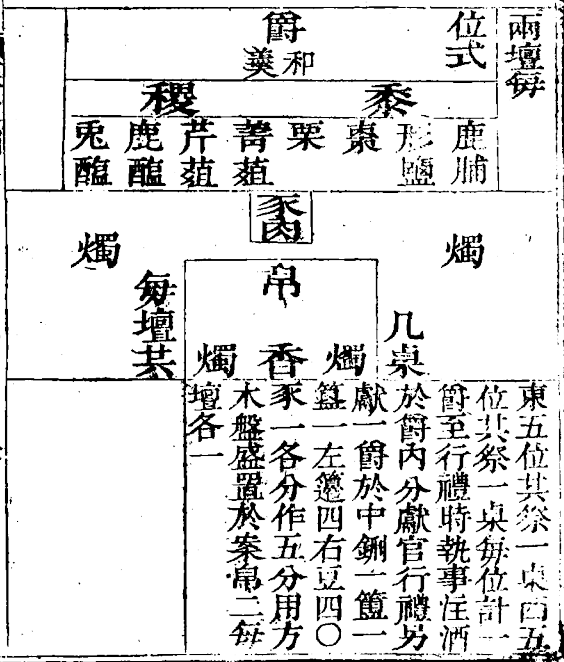 兩壇每
位式
爵
和羹
黍
稷
鹿脯
形鹽
棗
栗
菁菹
芹菹
鹿醢
兎醢
豕肉
燭
燭
每壇共
几卓
帛
燭
香
燭
東五位共祭一卓西五
位共祭一卓每位計一
爵至行禮時執事注酒
於爵內分獻官行禮另
獻一爵於中鉶一簠一
簋一左籩四右豆四〇
豕一各分作五分用方
木盤盛置於案帛二每
壇各一